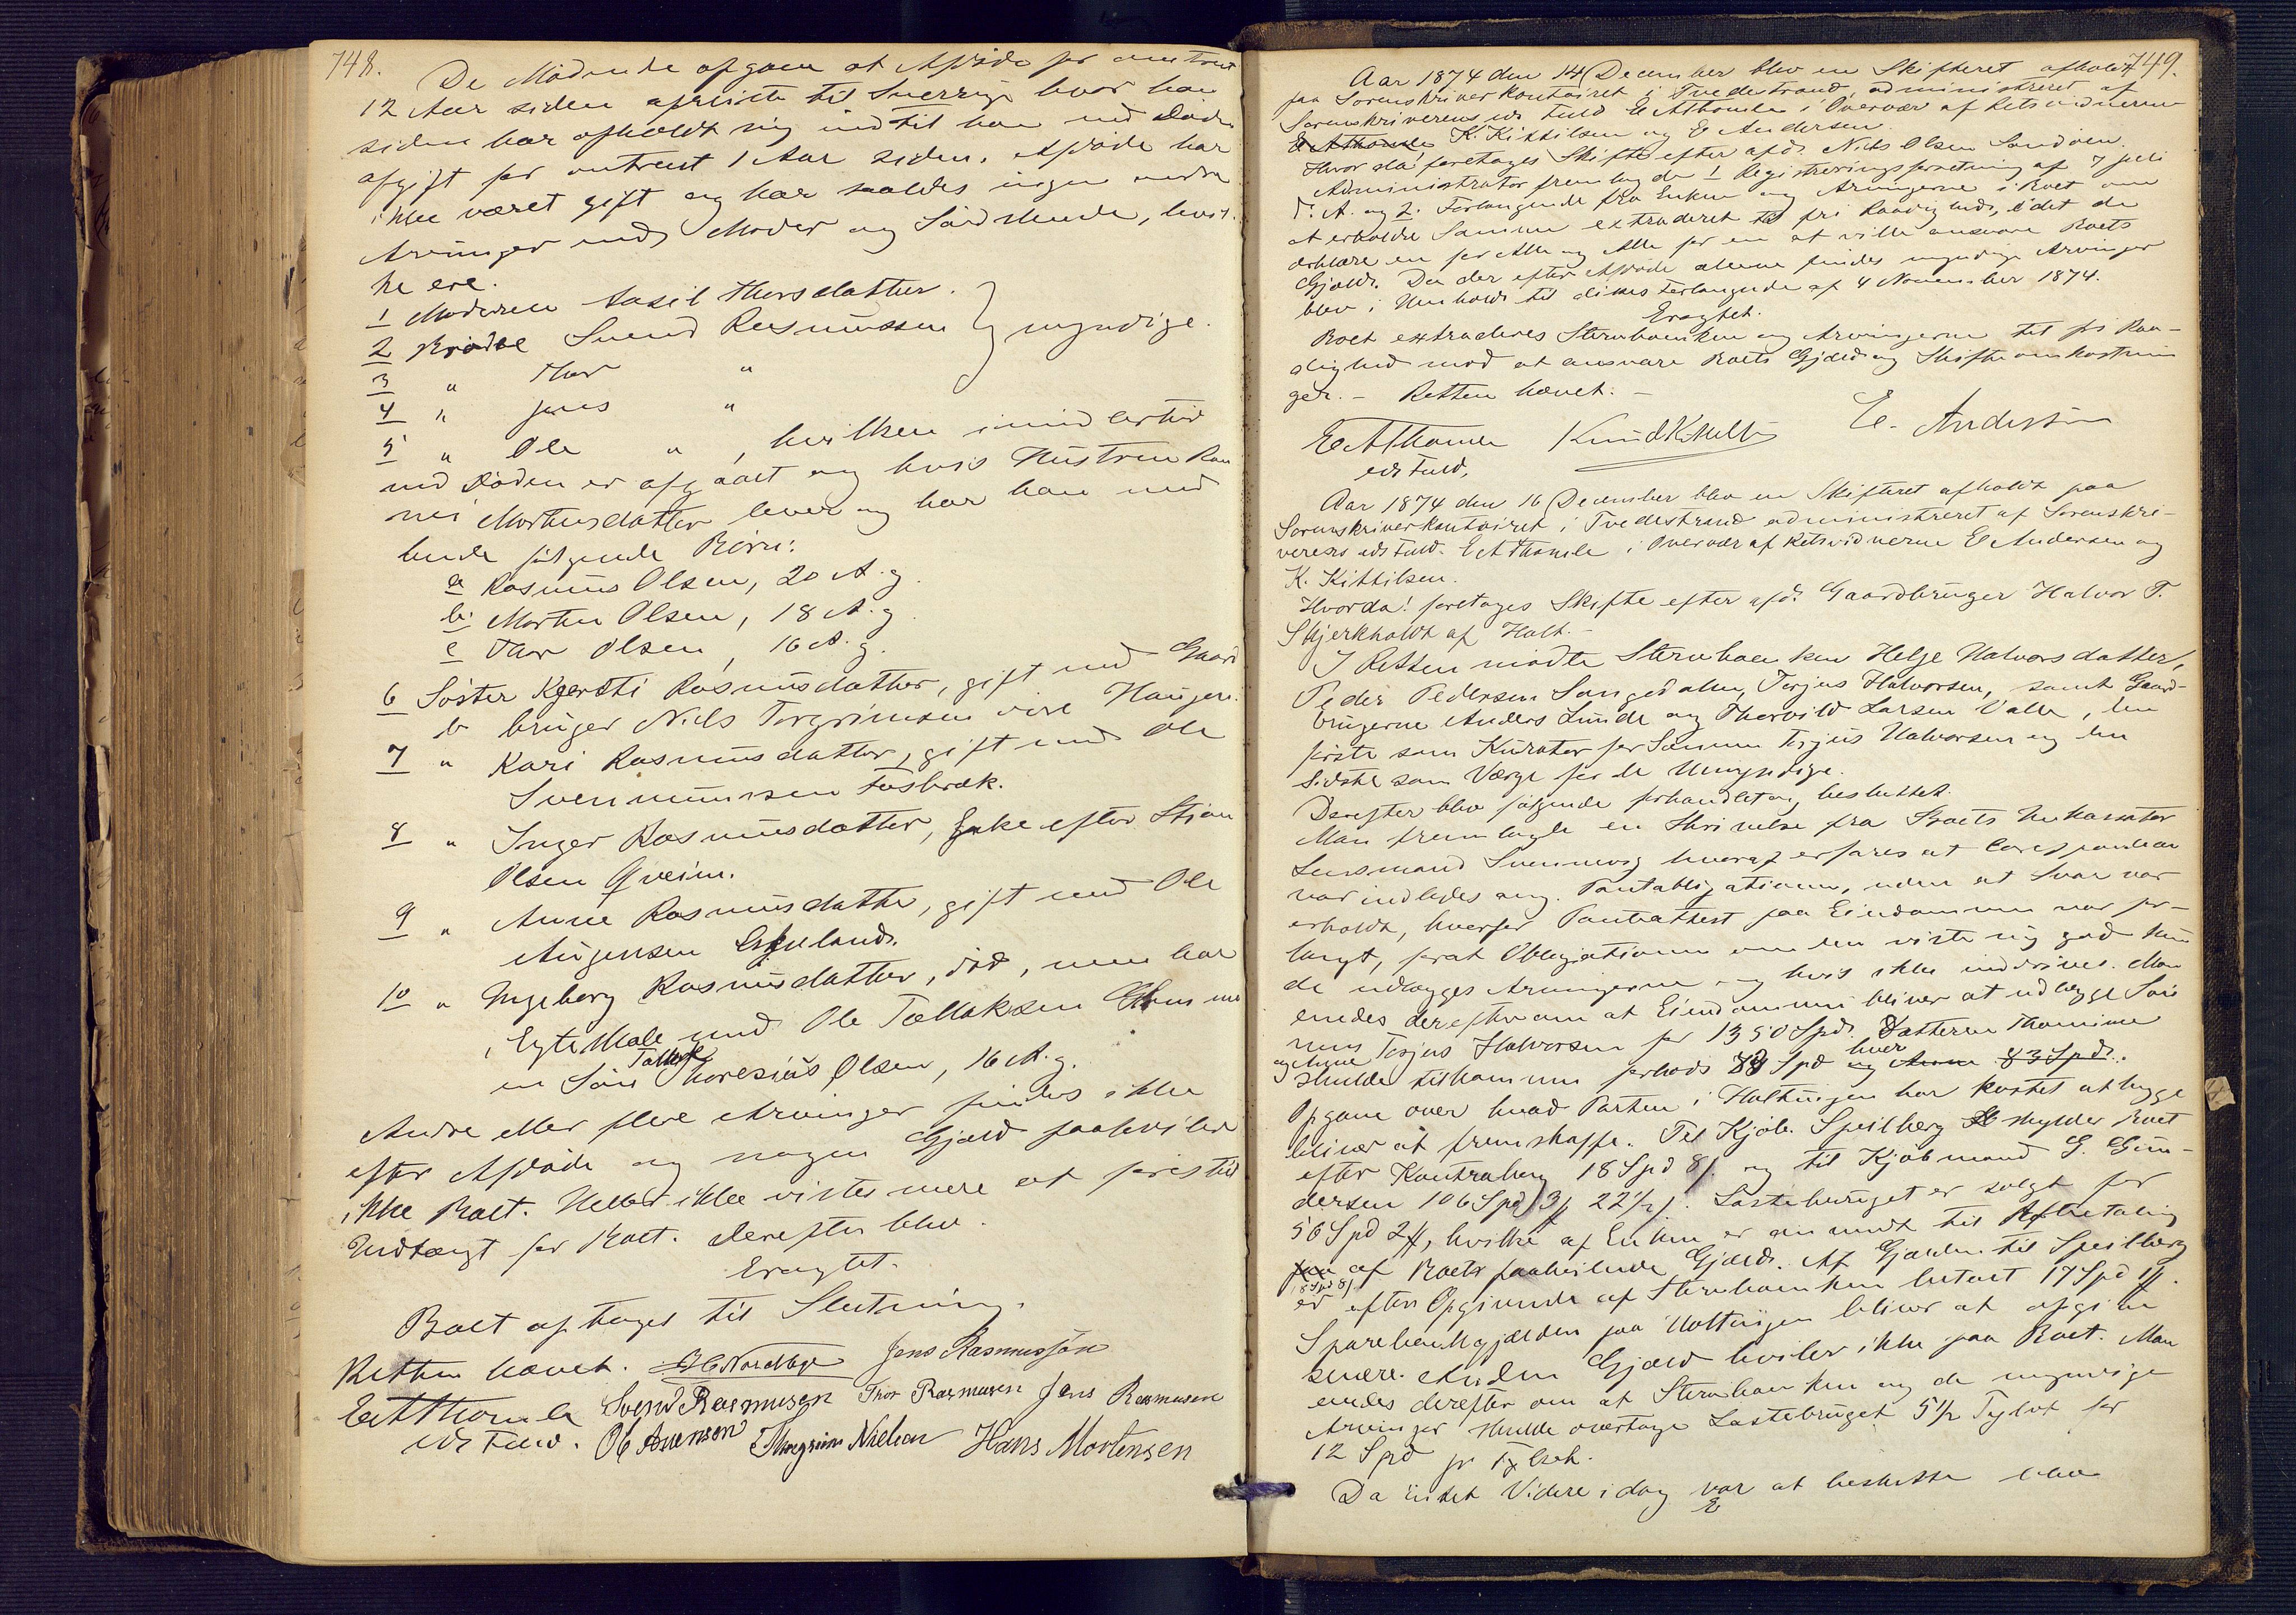 748.
De Mødende opgave at Afdøde for omtrent
12 Aar siden afreiste til Sverrige hvor han
siden har opholdt sig indtil han ved Døden
afgik for omtrent 1 Aar siden. Afdøde har
ikke været gift og har saaledes ingen andre
Arvinger end Moder og Sødskende, hvil-
ke ere.
1 Moderen Aasil Thorsdatter.
2 Broder Svend Rasmussen } myndige.
3 " Thor "
4 " Jens "
5 " Ole ", hvilken imidlertid
ved Døden er afgaaet og hvis Hustru Ran
nei Mortensdatter lever og har han med
hende følgende Børn:
a Rasmus Olsen, 20 A. g.
b. Morten Olsen, 18 A. g.
c Thor Olsen, 16 A. g.
6 Søster Kjersti Rasmusdatter, gift med Gaard
bruger Niels Torgrimsen Haugen.
7 " Kari Rasmusdatter, gift med Ole
Svennumsen Fosbræk.
8 " Inger Rasmusdatter, Enke efter Stian
Olsen Qveim.
9 " Anne Rasmusdatter, gift med Ole
Augensen
10 " Ingeborg Rasmusdatter, død, men har
i Egteskab med Ole Tallaksen
en Søn Tallak Olsen, 16 A. g.
Andre eller flere Arvinger findes ikke
efter Afdøde og nogen Gjæld paahviler
ikke Boet. Heller ikke vistes mere at føres til
Indtægt for Boet. Derefter blev.
Eragtet.
Boet optages til Slutning.
Retten hævet. Jens Rasmussøn
E A Thomle Svend Rasmusen Thor Rasmusen Jens Rasmusen
eds Fuld. Ole Avenson Thorgrim Nielsen Hans Mortensen
749.
Aar 1874 den 14 December blev en Skifteret afholdt
paa Sorenskriverkontoiret i Tvedestrand, administreret af
Sorenskriverens eds Fuld E A Thomle i Overvær af Retsvidnerne
K. Kittilsen og E Andersen
Hvorda! foretages Skifte efter afd. Niels Olsen Sandøen.
Administrator fremlagde 1 Registreringsforretning af 7 Juli
d. A. og 2. Forlangende fra Enken og Arvingerne i Boet om
at erholde Samme extraderet til fri Raadighed, idet de
erklære en for Alle og Alle for en at ville ansvare Boets
Gjæld. Da der efter Afdøde alene findes myndige Arvinger
blev i Henhold til disses Forlangende af 4 November 1874.
Eragtet.
Boet extraderes Stervboenken og Arvingerne til fri Raa-
dighed mod at ansvare Boets Gjæld og Skifteomkostnin
ger. - Retten hævet. -
E A Thomle Knud Kittilsen E. Andersen
eds Fuld.
Aar 1874 den 16 December blev en Skifteret afholdt paa
Sorenskriverkontoiret i Tvedestrand administreret af Sorenskri-
verens eds Fuld. E A Thomle i Overvær af Retsvidnerne E Andersen og
K. Kittilsen.
Hvorda! foretages Skifte efter afd. Gaardbruger Halvor T.
Skjerkholdt af Holt. -
I Retten mødte Stervboenken Helje Halvorsdatter,
Peder Pedersen Songedalen, Terjus Halvorsen, samt Gaard-
brugerne Anders Lunde og Thorvild Larsen Valle, den
første som Kurator for Sønnen Terjus Halvorsen og den
sidste som Værge for de Umyndige.
Derefter blev følgende forhandlet og besluttet.
Man fremlagde en Skrivelse fra Boets Inkassator
Lensmand Svennevig hvoraf erfares at Correspondance
var indledes ang. Pantobligationen, uden at Svar var
erholdt, hvorfor Pantattest paa Eiendommen var for-
langt, forat Obligationen om den viste sig god kun
de udlægges Arvingerne og hvis ikke inddrives. Man
enedes derefter om at Eiendommen bliver at udlægge Søn
nen Terjus Halvorsen for 1350 Spd. Døttrene Thomine
og Anne skulde tilkomme forlods 83 Spd hver og Anne 83 Spd.
Opgave over hvad Parten i Holtingen har kostet at bygge
bliver at fremskaffe. Til Kjøb. Speilberg skylder Boet
efter Kontrabog 18 Spd 8ſ og til Kjøbmand G. Gun-
dersen 106 Spd 3ſ 22½ſ. Lastebruget er solgt for
56 Spd 2ſ, hvilke af Enken er anvendt til Afbetaling
af Boets paahvilende Gjæld. Af Gjælden til Speilberg
18 Spd 8ſ
er efter Opgivende af Stervboenken betalt 17 Spd 1ſ.
Sparebankgjælden paa Holtingen bliver at opgive
senere. Anden Gjæld hviler ikke paa Boet. Man
enedes derefter om at Stervboenken og de myndige
Arvinger skulde overtage Lastebruget 5½ Tylvt for
12 Spd pr Tylvt.
Da intet Videre i dag var at beslutte blev
E